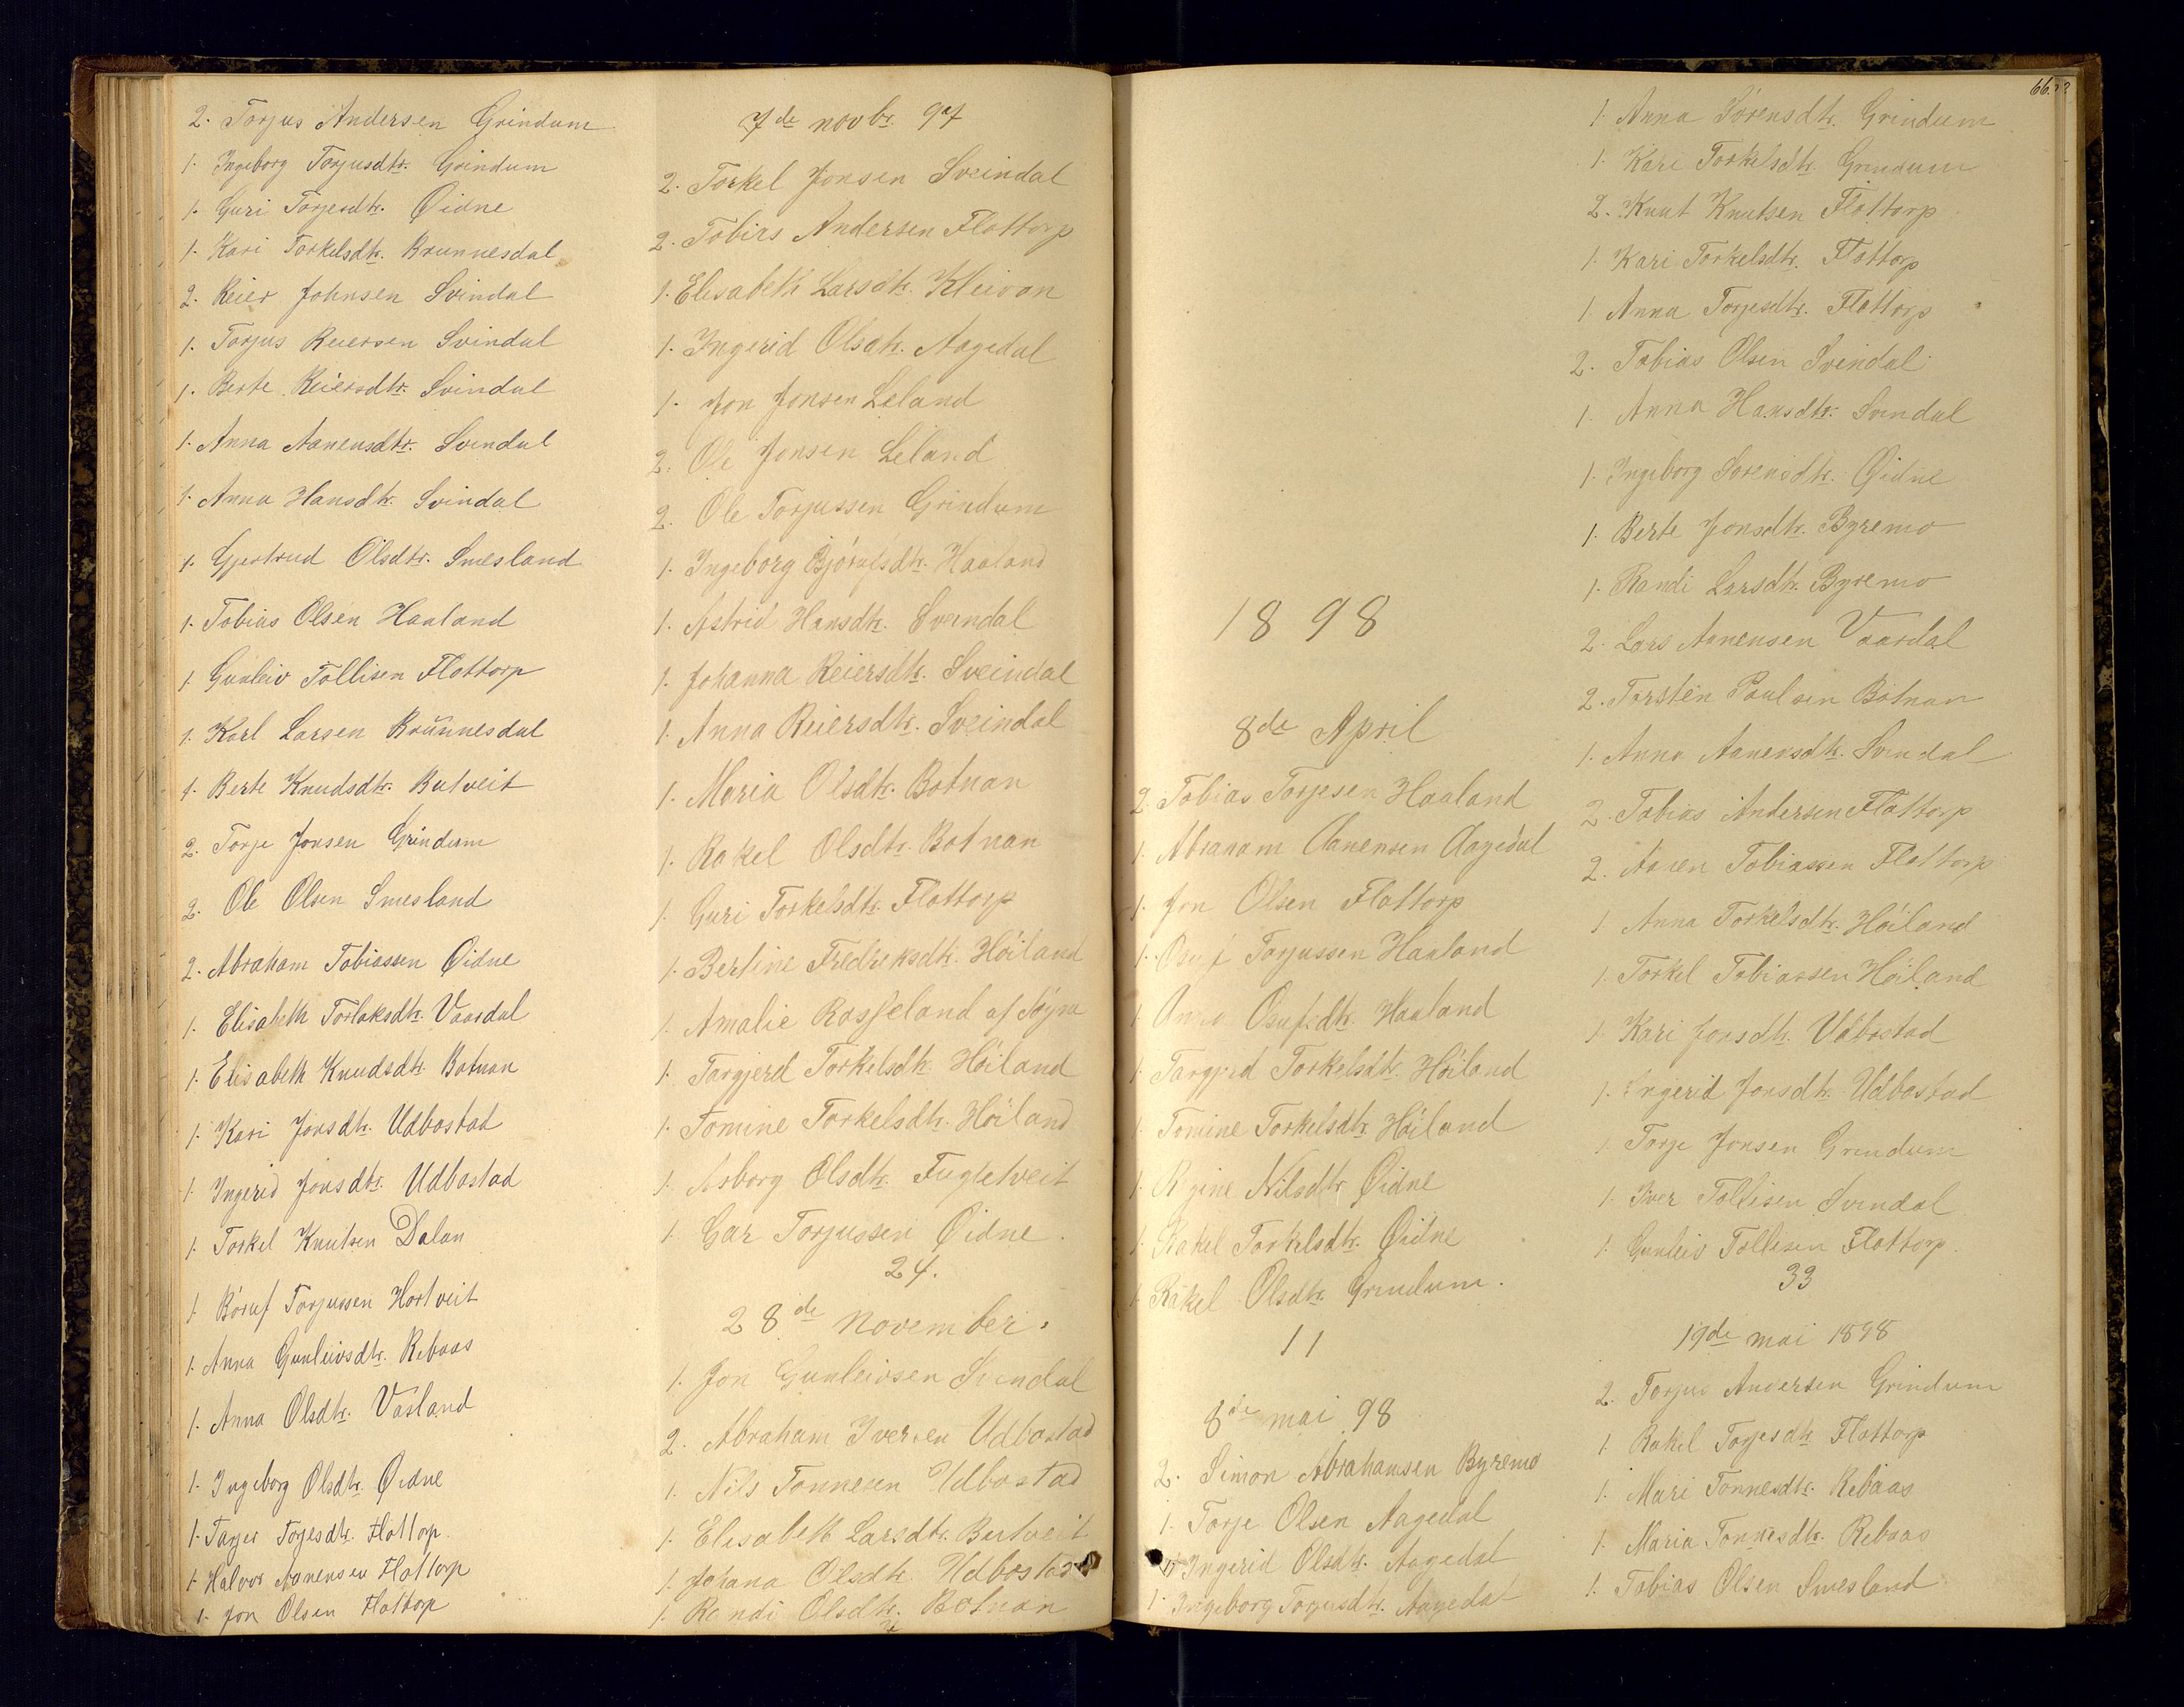 2. Torjus Andersen Grindum
1. Ingeborg Torjusdtr. Grindum
1. Guri Torjesdtr. Øidne
1. Kari Torkelsdtr. Brunnesdal
2. Reier Johnsen Svindal
1. Torjus Reiersen Svindal
1. Berte Reiersdtr. Svindal
1. Anna Aanensdtr. Svindal
1. Anna Hansdtr. Svindal
1. Gjertrud Olsdtr. Smesland
1. Tobias Olsen Haaland
1. Gunleiv Tollisen Flottorp
1. Karl Larsen Brŭnnesdal
1. Berte Knudsdtr. Butveit
2. Torje Jonsen Grindum
2. Ole Olsen Smesland
2. Abraham Tobiassen Øidne
1. Elisabeth Torlaksdtr. Vaardal
1. Elisabeth Knudsdtr. Botnan
1. Kari Jonsdtr. Udbostad
1. Ingerid Jonsdtr. Udbostad
1. Torkel Knutsen Dalan
1. Röruf Torjussen Hortveit
1. Anna Gunleivsdtr. Rebaas
1. Anna Olsdtr. Vasland
1. Ingeborg Olsdtr. Øidne
1. Tarjer Torjesdtr. Flottorp
1. Halvor Aanensen Flottorp
1. Jon Olsen Flottorp
7de novbr. 97
2. Torkel Jonsen Sveindal
2. Tobias Andersen Flottorp
1. Elisabeth Larsdtr. Kleivan
1. Ingerid Olsdtr. Aagedal
1. Jon Jonsen Leland
2. Ole Jonsen Leland
2. Ole Torjussen Grindum
1. Ingeborg Björufsdtr. Haaland
1. Astrid Hansdtr. Sveindal
1. Johanna Reiersdtr. Sveindal
1. Anna Reiersdtr. Sveindal
1. Maria Olsdtr. Botnan
1. Rakel Olsdtr. Botnan
1. Guri Torkelsdtr. Flottorp
1. Bertine Fredreksdtr. Höiland
1. Amalie Rosseland af Søgne
1. Targjerd Torkelsdtr. Höiland
1. Tomine Torkelsdtr. Höiland
1. Asborg Olsdtr. Fugletveit
1. Gar Torjussen Øidne.
24.
28de November.
1. Jon Gunleivsen Svendal
2. Abraham Iversen Udbostad
1. Nils Tonnesen Udbostad
1. Elisabeth Larsdtr. Butveit
1. Johana Olsdtr. Udbostad
1. Randi Olsdtr. Botnan
66.
1898
8de April
2. Tobias Torjesen Haaland
1. Abraham Aanensen Aagedal
1. Jon Olsen Flottorp
1. Osuf Torjussen Haaland
1. Anna Osufsdtr. Haaland
1. Targjerd Torkelsdtr. Höiland
1. Tomine Torkelsdtr. Höiland
1. Regine Nilsdtr. Øidne
1. Rakel Torkelsdtr. Øidne
1. Rakel Olsdtr. Grindum.
11
8de mai 98
2. Simon Abrahamsen Byremo
1. Torje Olsen Aagedal
1. Ingerid Olsdtr. Aagedal
1. Ingeborg Torjusdtr. Aagedal
1. Anna Sørensdtr. Grindum
1. Kari Torkelsdtr. Grindum
2. Knut Knutsen Flottorp
1. Kari Torkelsdtr. Flottorp
1. Anna Torjesdtr. Flottorp
2. Tobias Olsen Svendal
1. Anna Hansdtr. Svindal
1. Ingeborg Sorensdtr. Øidne
1. Berte Jonsdtr. Byremo
1. Randi Larsdtr. Byremo
2. Lars Aanensen Vaardal
2. Torsten Paulsen Botnan
1. Anna Aanensdtr. Svendal
2. Tobias Andersen Flottorp
2. Aanen Tobiassen Flottorp
1. Anna Torkelsdtr. Höiland
1. Torkel Tobiassen Höiland
1. Kari Jonsdtr. Udbostad
1. Ingerid Jonsdtr. Udbostad
1. Torje Jonsen Grindum
1. Iver Tollisen Svendal
1. Gunleiv Tollisen Flottorp.
33
19de mai 1898
2. Torjus Andersen Grindum
1. Rakel Torjesdtr. Flottorp
1. Mari Tonnesdtr. Rebaas
1. Maria Tonnesdtr. Rebaas
1. Tobias Olsen Smesland